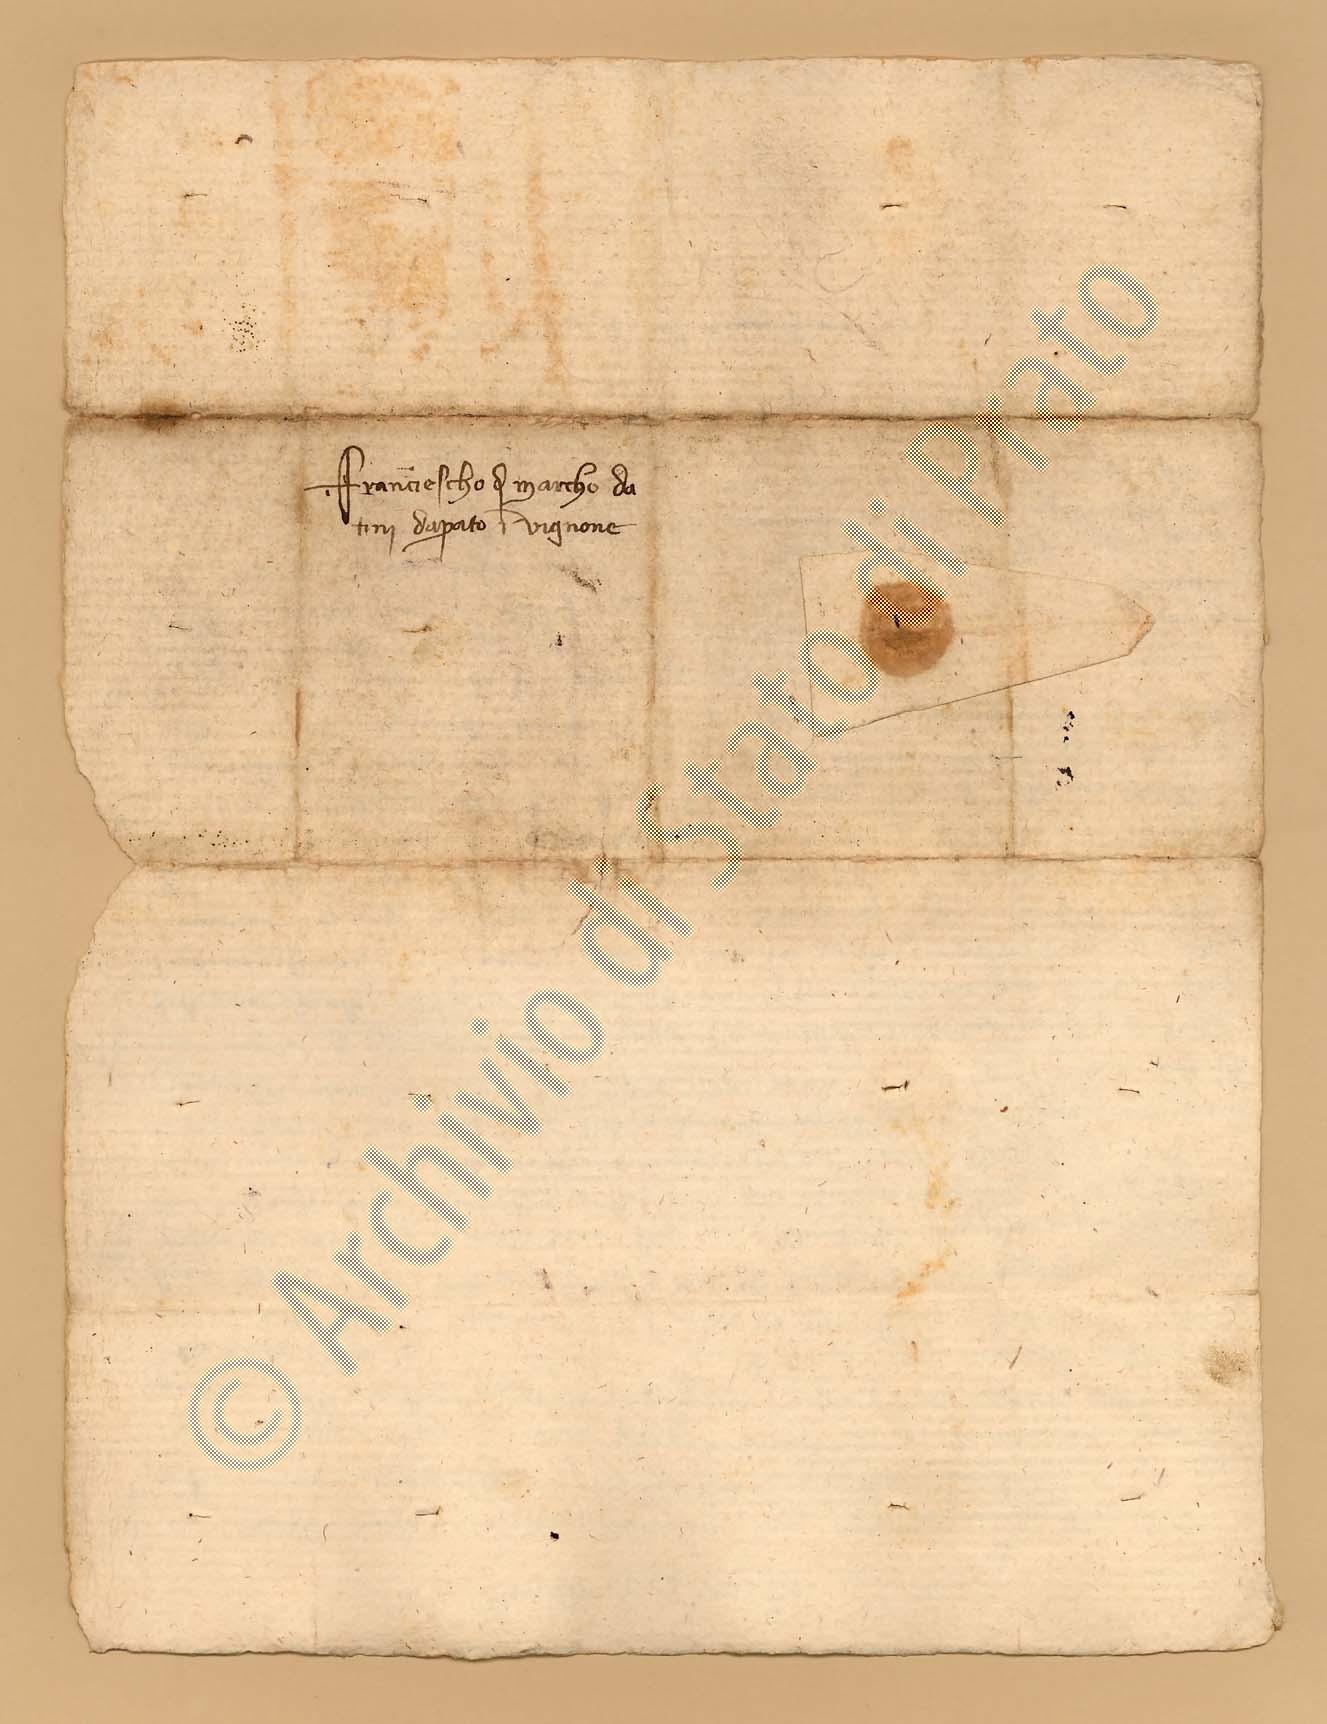 Franciescho d marcho da
tini dapato i vignone
© Archivio di Stato di Prato